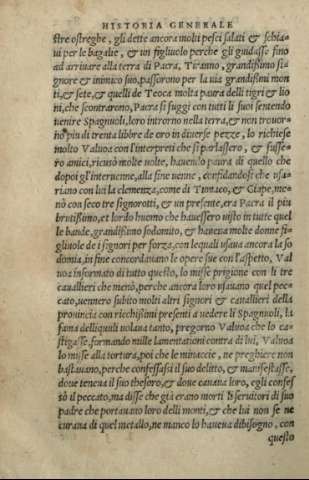 HISTORIA GENERALE
stre ostreghe, gli dette ancora molti pesci salati & schia-
ui per le bagalie, & un figliuolo perche gli guidasse fino
ad arriuare alla terra di Pacra, Tiranno, grandissimo si-
gnore & inimico suo, passorono per la uia grandissimi mon
ti, & sete, & quelli de Teoca molta paura delli tigri & lio
ni, che scontrarono, Pacra si fuggi con tutti li suoi sentendo
uenire Spagnuoli, loro introrno nella terra, & non trouor-
no piu di trenta libbre de oro in diuerse pezze, lo richiese
molto Valuoa con l'interpreti che si parlassero, & fusse-
ro amici, ricusò molte uolte, hauendo paura di quello che
dopoi gl'interuenne, alla fine uenne, confidandosi che usa-
riano con lui la clemenza, come di Tumaco, & Ciape, me-
nò con seco tre signorotti, & un presente, era Pacra il piu
bruttissimo, et lordo huomo che hauessero uisto in tutte quel
le bande, grandissimo sodomito, & haueua molte donne fi-
gliuole de i signori per forza, con lequali usaua ancora la so
domia, in fine concordauano le opere sue con l'aspetto, Val
uoa informato di tutto questo, lo misse prigione con li tre
cauallieri che menò, perche ancora loro usauano quel pec-
cato, uennero subito molti altri signori & cauallieri della
prouincia con ricchissimi presenti a uedere li Spagnuoli, la
fama delliquali uolaua tanto, pregorno Valuoa che lo ca-
stigasse, formando mille lamentationi contra di lui, Valuoa
lo misse alla tortura, poi che le minaccie, ne preghiere non
bastauano, perche confessassi il suo delitto, & manifestasse,
doue teneua il suo thesoro, & doue cauaua loro, egli confes
sò il peccato, ma disse che gia erano morti li seruitori di suo
padre che portauano loro delli monti, & che lui non se ne
curaua di quel metallo, ne manco lo haueua dibisogno, con
questo